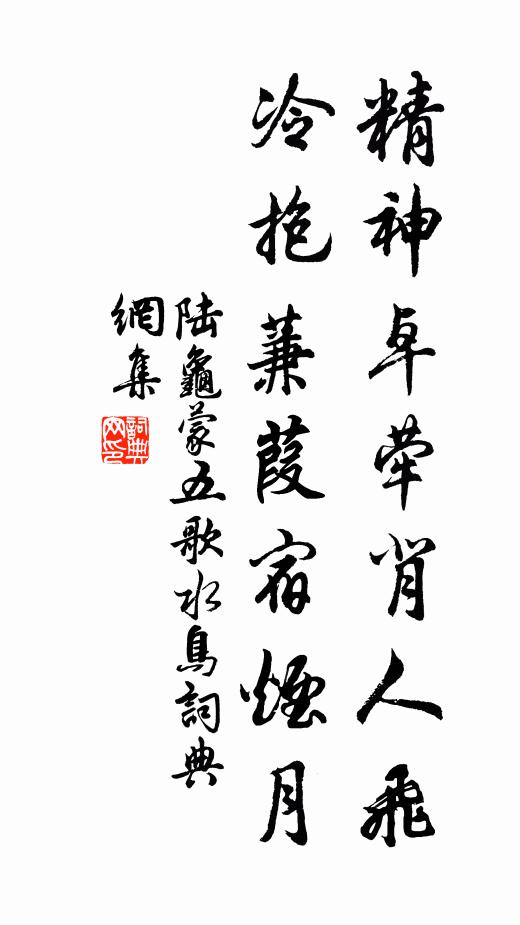 精神卓犖背人飛
冷抱蒹葭宿煙月
陸龜蒙五歌水鳥詞典
網集
詞典
网印